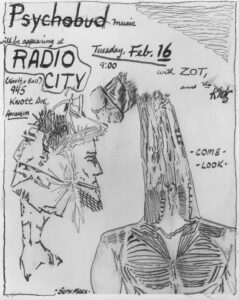 Psychobud music
will be appearing at
RADIO
CITY
945
Knott Ave,
Anaheim
Tuesday, Feb. 16
9:00
with ZOT,
and the
- COME -
- LOOK -